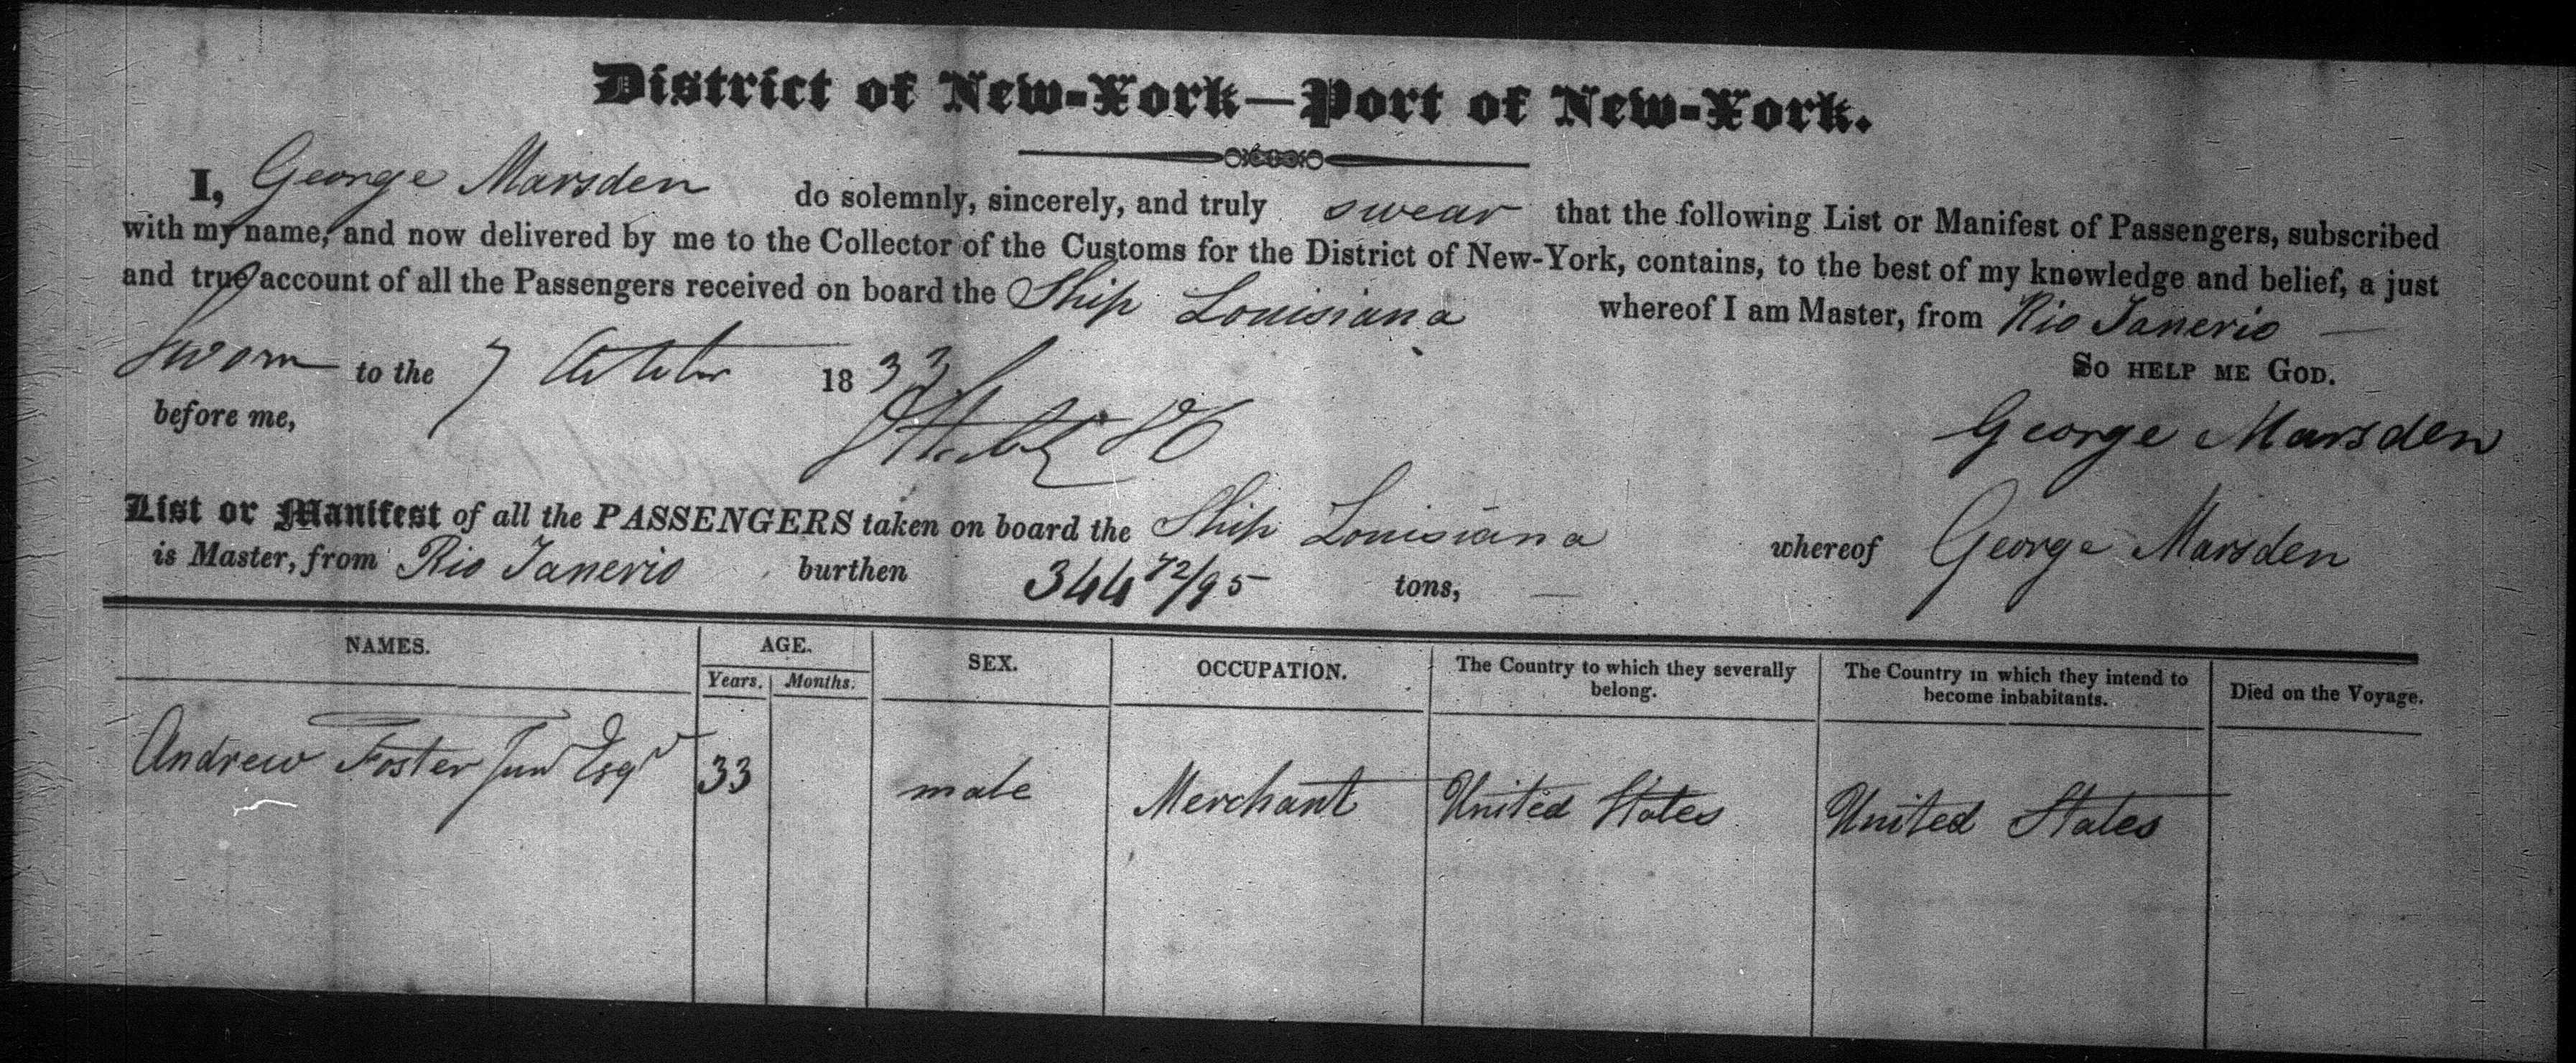 District of New-York—Port of New-York.
I, George Marsden do solemnly, sincerely, and truly swear that the following List or Manifest of Passengers, subscribed
with my name, and now delivered by me to the Collector of the Customs for the District of New-York, contains, to the best of my knowledge and belief, a just
and true account of all the Passengers received on board the Ship Louisiana whereof I am Master, from Rio Janerio
So help me God.
Sworn to the 7 1833
before me,
George Marsden
List or Manifest of all the PASSENGERS taken on board the Ship Louisiana whereof George Marsden
is Master, from Rio Janerio burthen 344 72/95 tons,
NAMES. AGE. SEX. OCCUPATION. The Country to which they severally belong. The Country in which they intend to become inhabitants. Died on the Voyage.
Years. Months.
Andrew Foster Junr Esqr 33 male Merchant United States United States